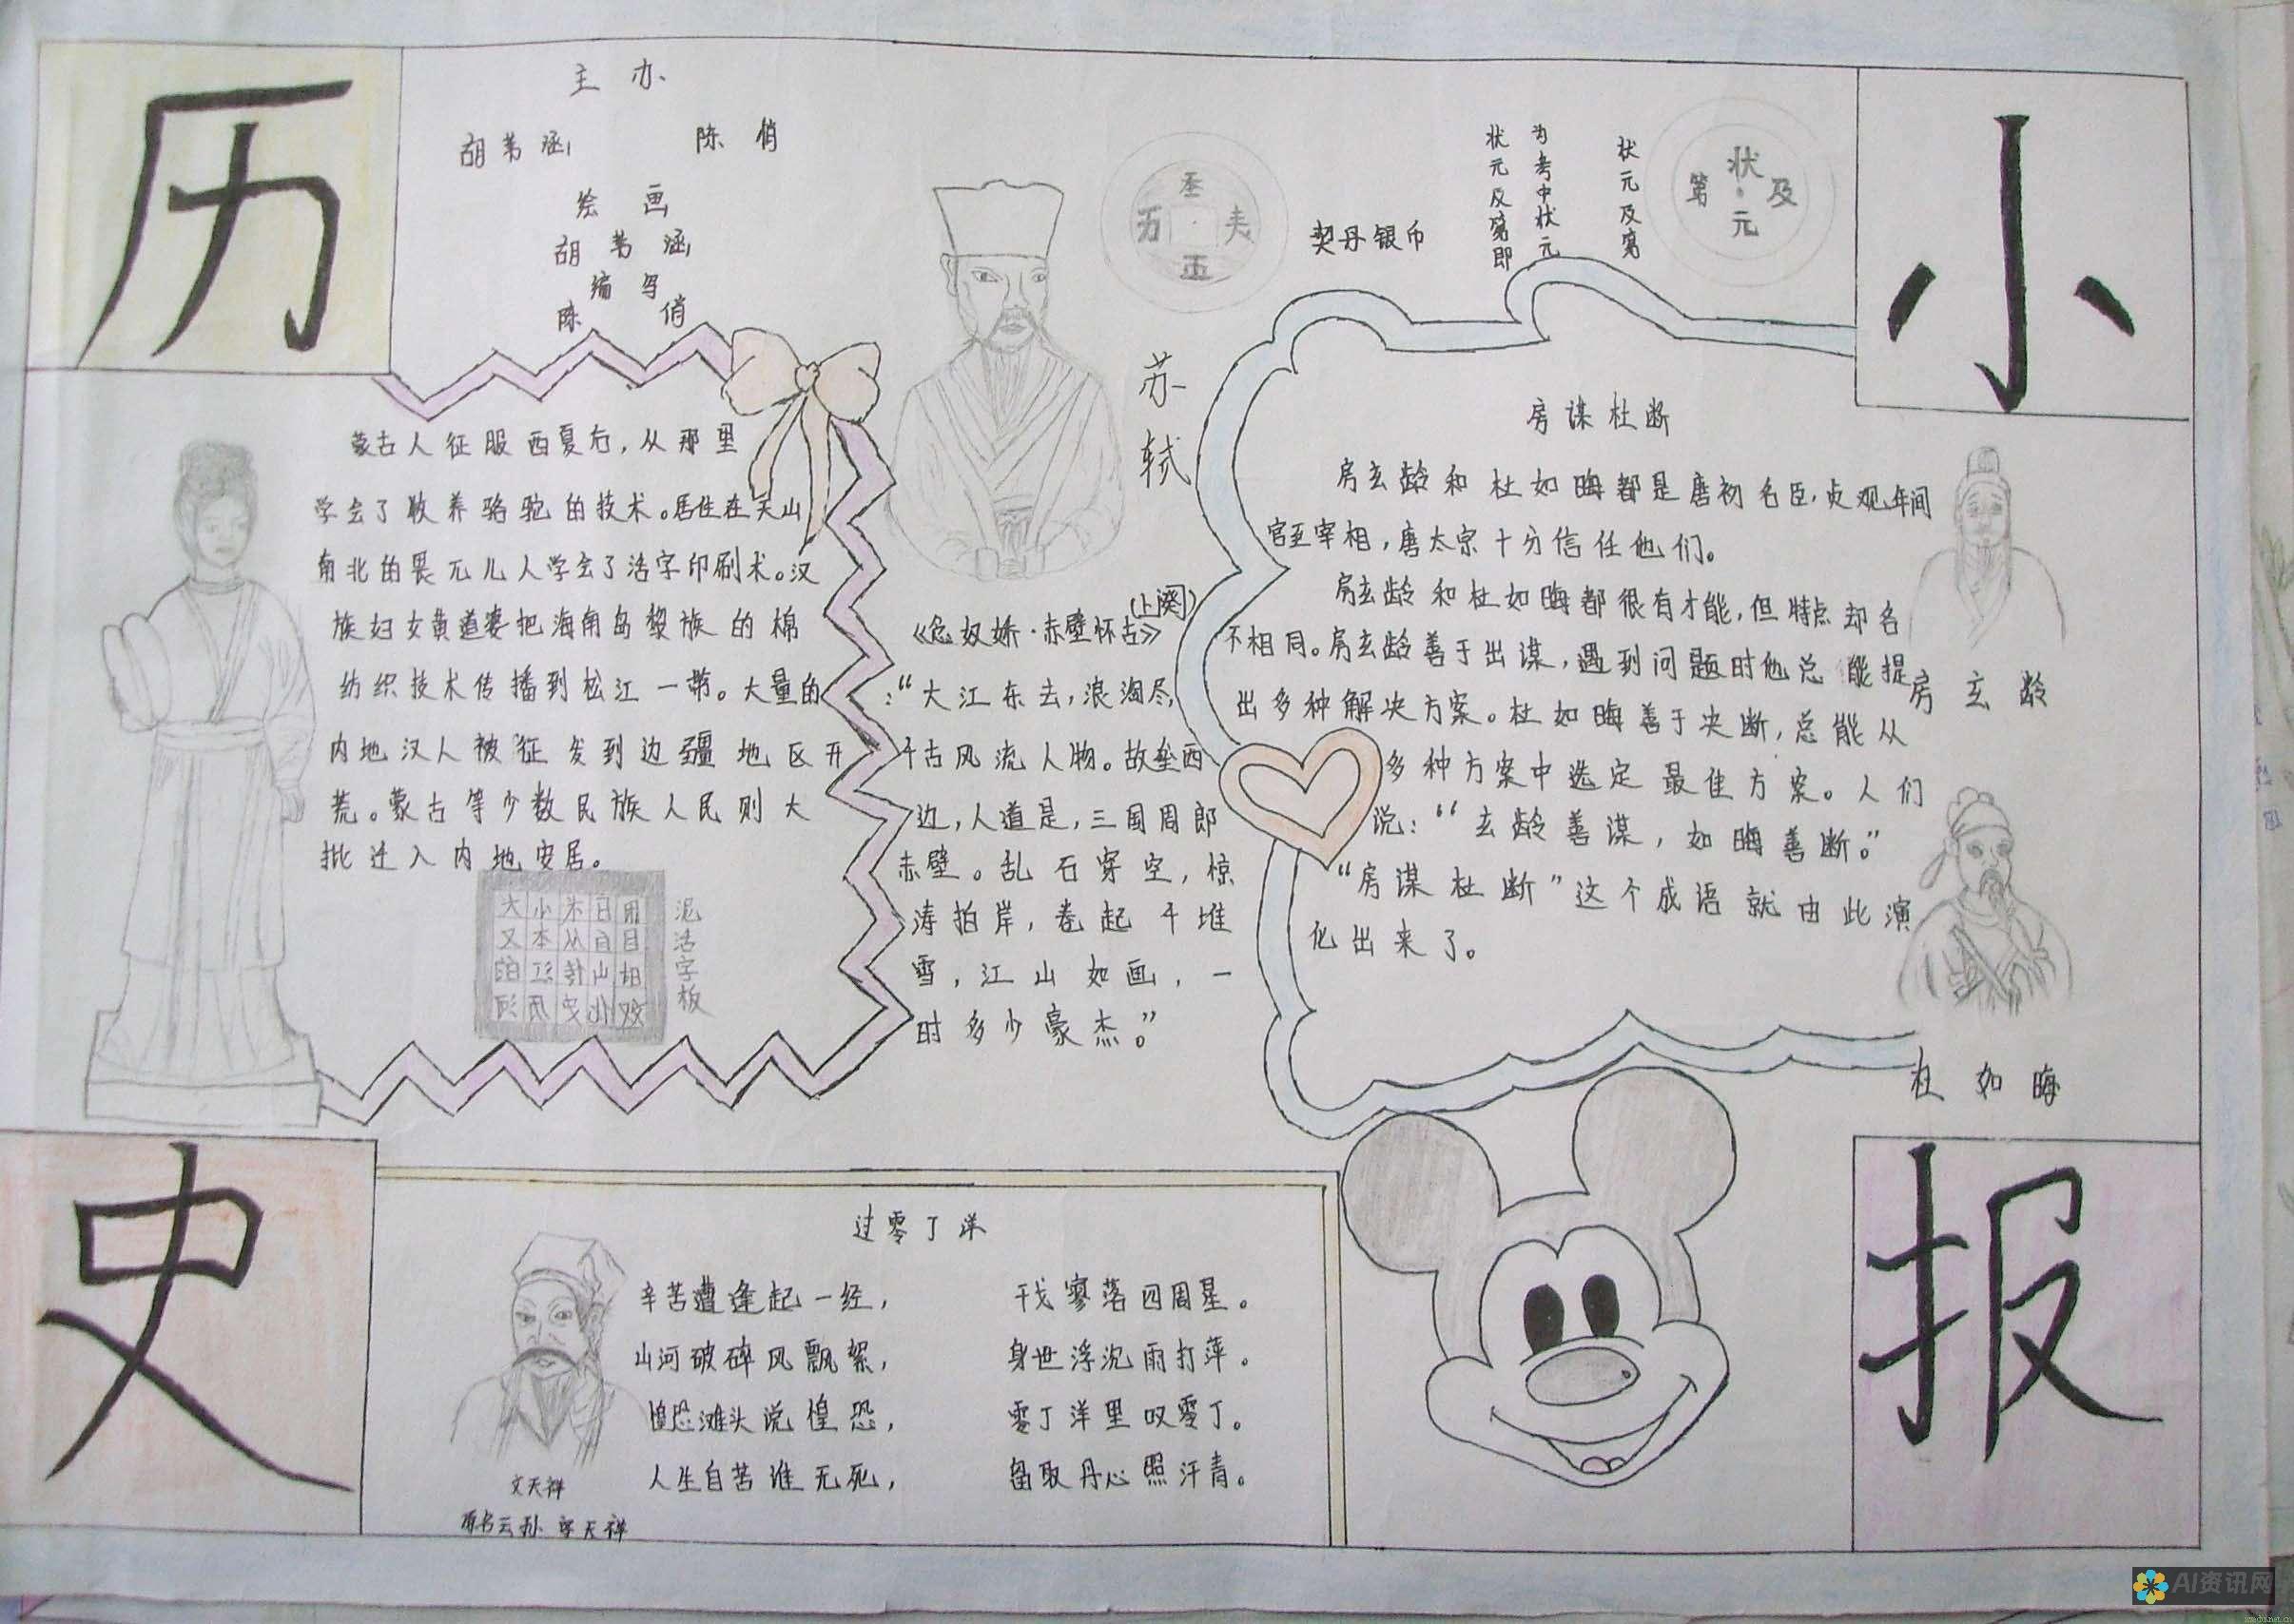 历
史
小
报
主办
胡苇涵 陈俏
绘画
胡苇涵
编写
陈俏
蒙古人征服西夏后，从那里
学会了牧养骆驼的技术。居住在天山
南北的畏兀儿人学会了活字印刷术。汉
族妇女黄道婆把海南岛黎族的棉
纺织技术传播到松江一带。大量的
内地汉人被征发到边疆地区开
荒。蒙古等少数民族人民则大
批迁入内地安居。
泥活字板
苏轼
《念奴娇·赤壁怀古》(上阕)
：“大江东去，浪淘尽，
千古风流人物。故垒西
边，人道是，三国周郎
赤壁。乱石穿空，惊
涛拍岸，卷起千堆
雪，江山如画，一
时多少豪杰。”
契丹银币
状元及第即
为考中状元
状元及第
状元及第
房谋杜断
房玄龄和杜如晦都是唐初名臣，贞观年间
官至宰相，唐太宗十分信任他们。
房玄龄和杜如晦都很有才能，但特点却各
不相同。房玄龄善于出谋，遇到问题时他总能提
出多种解决方案。杜如晦善于决断，总能从
多种方案中选定最佳方案。人们
说：“玄龄善谋，如晦善断。”
“房谋杜断”这个成语就由此演
化出来了。
房玄龄
杜如晦
过零丁洋
辛苦遭逢起一经， 干戈寥落四周星。
山河破碎风飘絮， 身世浮沉雨打萍。
惶恐滩头说惶恐， 零丁洋里叹零丁。
人生自苦谁无死， 留取丹心照汗青。
文天祥
原名云孙 字天祥
AI资讯网